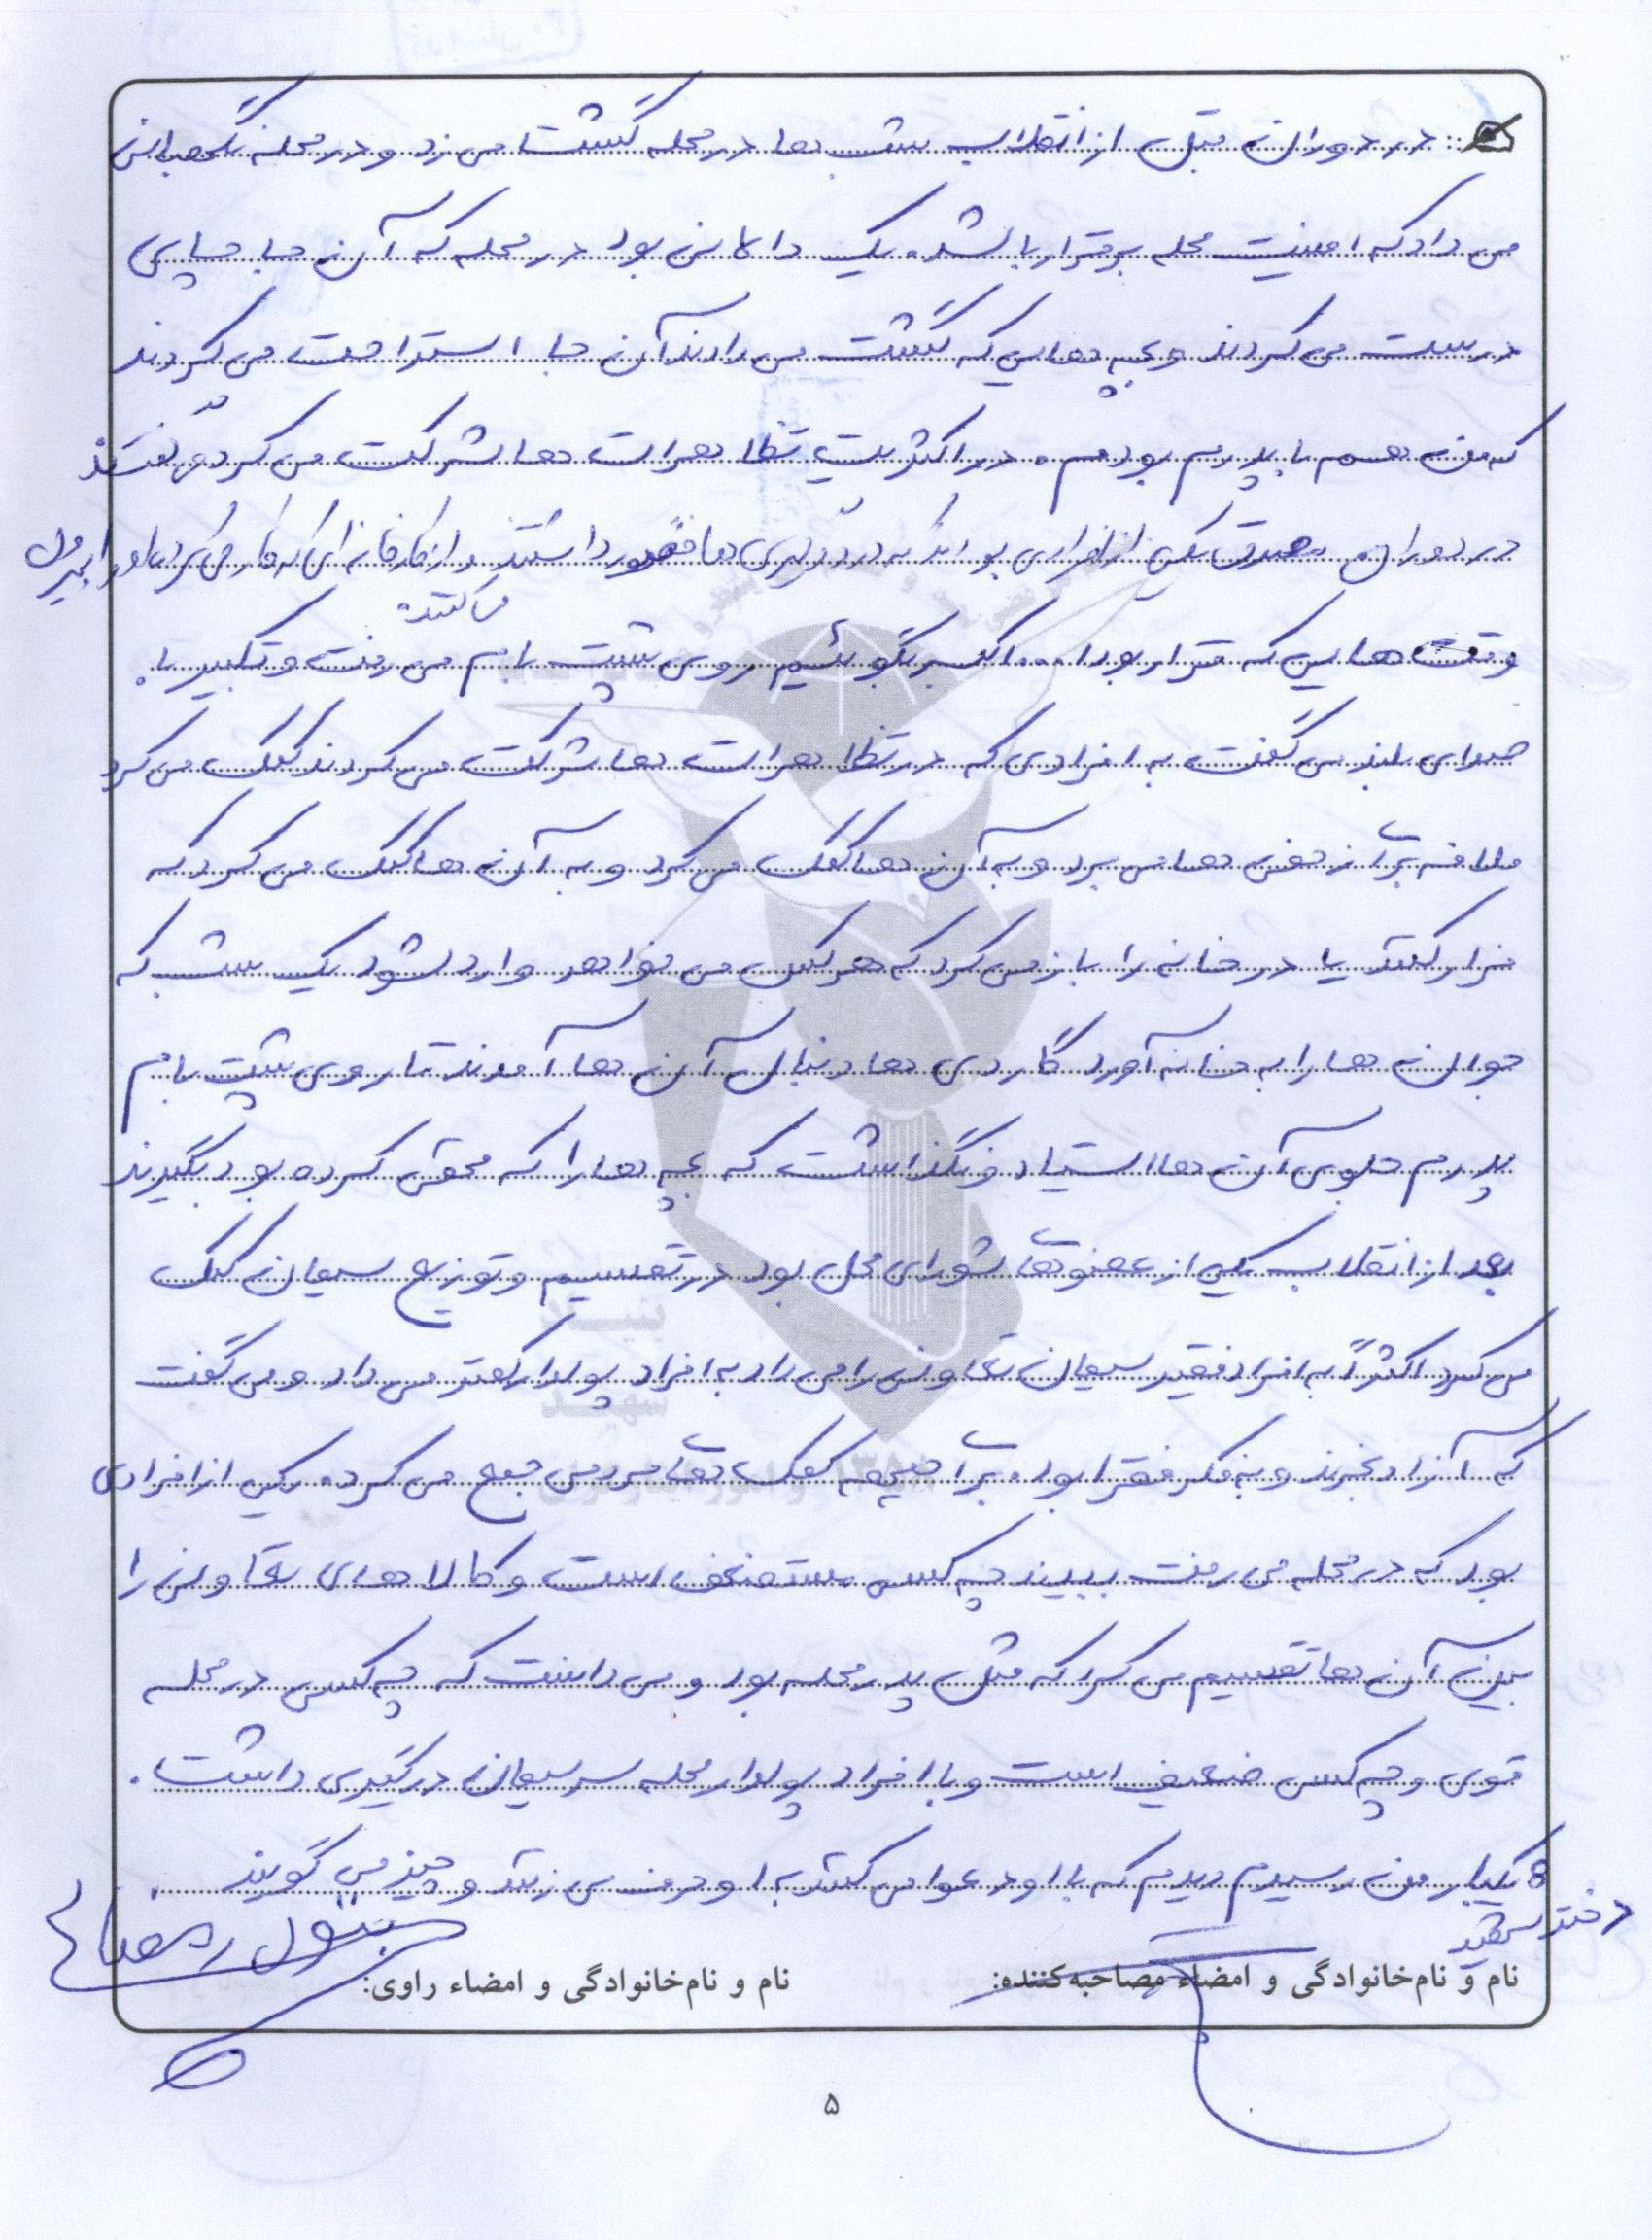 در دوران قبل از انقلاب شب ها در محله گشت می زد و در محله نگهبانی
می داد که امنیت محله برقرار باشد. یک دالانی بود در محله که آن جا چایی
درست می کردند و بچه هایی که گشت می دادند آن جا استراحت می کردند
که من هم با پدرم بودم. در اکثریت تظاهرات ها شرکت می کرد
در دوران مصدق یکی از افرادی بود که در درگیری ها حضور داشتند و از کارخانه ای که کار می کرد او را
می کنند.
وقت هایی که قرار بود ا... اکبر بگوئیم روی پشت بام می رفت و تکبیر با
صدای بلند می گفت به افرادی که در تظاهرات ها شرکت می کردند کمک می کرد
ملافه برای زخمی ها می برد و به آن ها کمک می کرد و به آن ها کمک می کرد که
فرار کنند یا در خانه را باز می کرد که هر کس می خواهد وارد شود یک شب که
جوان ها را به خانه آورد گاردی ها دنبال آن ها آمدند تا روی پشت بام
پدرم جلوی آن ها استیاد و نگذاشت که بچه ها را که مخفی کرده بود بگیرند
بعد از انقلاب یکی از عضوهای شورای محل بود در تقسیم و توزیع سیمان کمک
می کرد اکثراً به افراد فقیر سیمان تعاونی را می داد به افراد پولدار کمتر می داد و می گفت
که آزاد بخرند و به فکر فقرا بود. برای جبهه کمک های مردمی جمع می کرد. یکی از افرادی
بود که در محله می رفت ببیند چه کسی مستضعف است و کالاهای تعاونی را
بین آن ها تقسیم می کرد که مثل پدر محله بود و می دانست که چه کسی در محله
قوی و چه کسی ضعیف است و با افراد پولدار محله سر سیمان درگیری داشت.
یکبار من رسیدم دیدم که با او دعوا می کنند به او حرف می زنند و چیز می گویند
دختر شهید
بتول رمضانی
نام و نام‌خانوادگی و امضاء مصاحبه‌کننده:
نام و نام‌خانوادگی و امضاء راوی:
۵